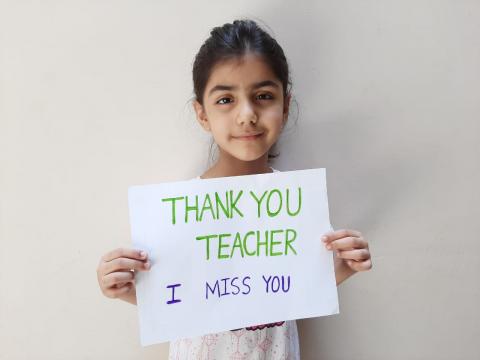 THANK YOU
TEACHER
I MISS YOU